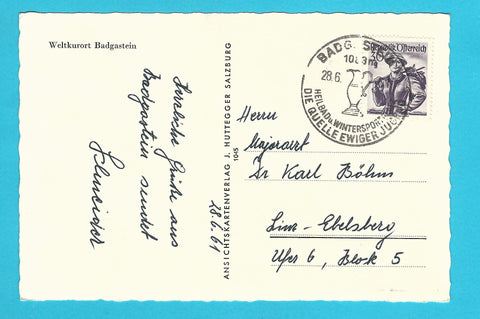 Weltkurort Badgastein
Herzliche Grüße aus
Badgastein sendet
28.6.61
ANSICHTSKARTENVERLAG J. HUTTEGGER SALZBURG
1045
BADG
1083m
28.6.
HEILBAD u. WINTERSPORT
DIE QUELLE EWIGER JUG
Republik Österreich
Herrn
Majorarzt
Dr Karl Böhm
Linz-Ebelsberg
Ufer 6, Block 5